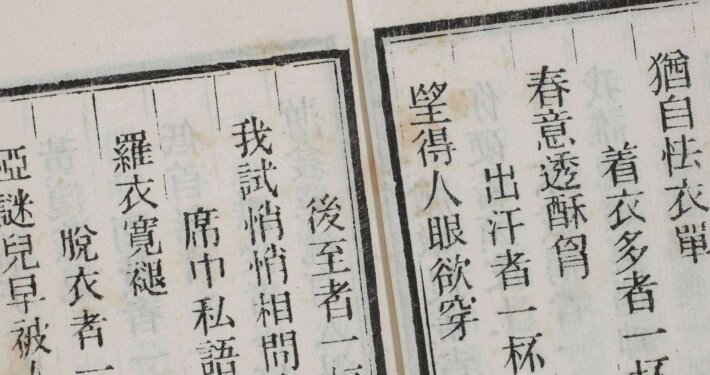 猶自怯衣單
着衣多者一杯
春意透酥胷
出汗者一杯
望得人眼欲穿
後至者一杯
我試悄悄相問
席中私語
羅衣寬褪
脫衣者一
啞謎兒早被